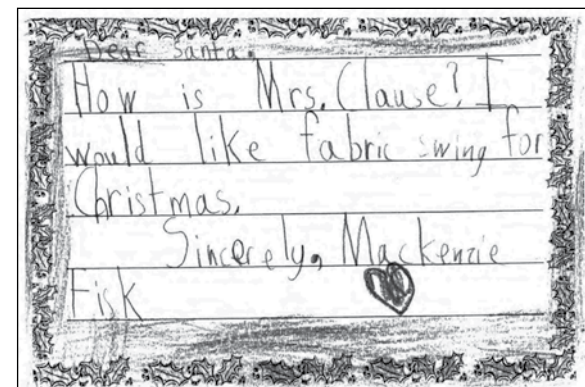 Dear Santa,
How is Mrs. Clause? I
would like fabric swing for
Christmas.
Sincerely, Mackenzie
Fisk